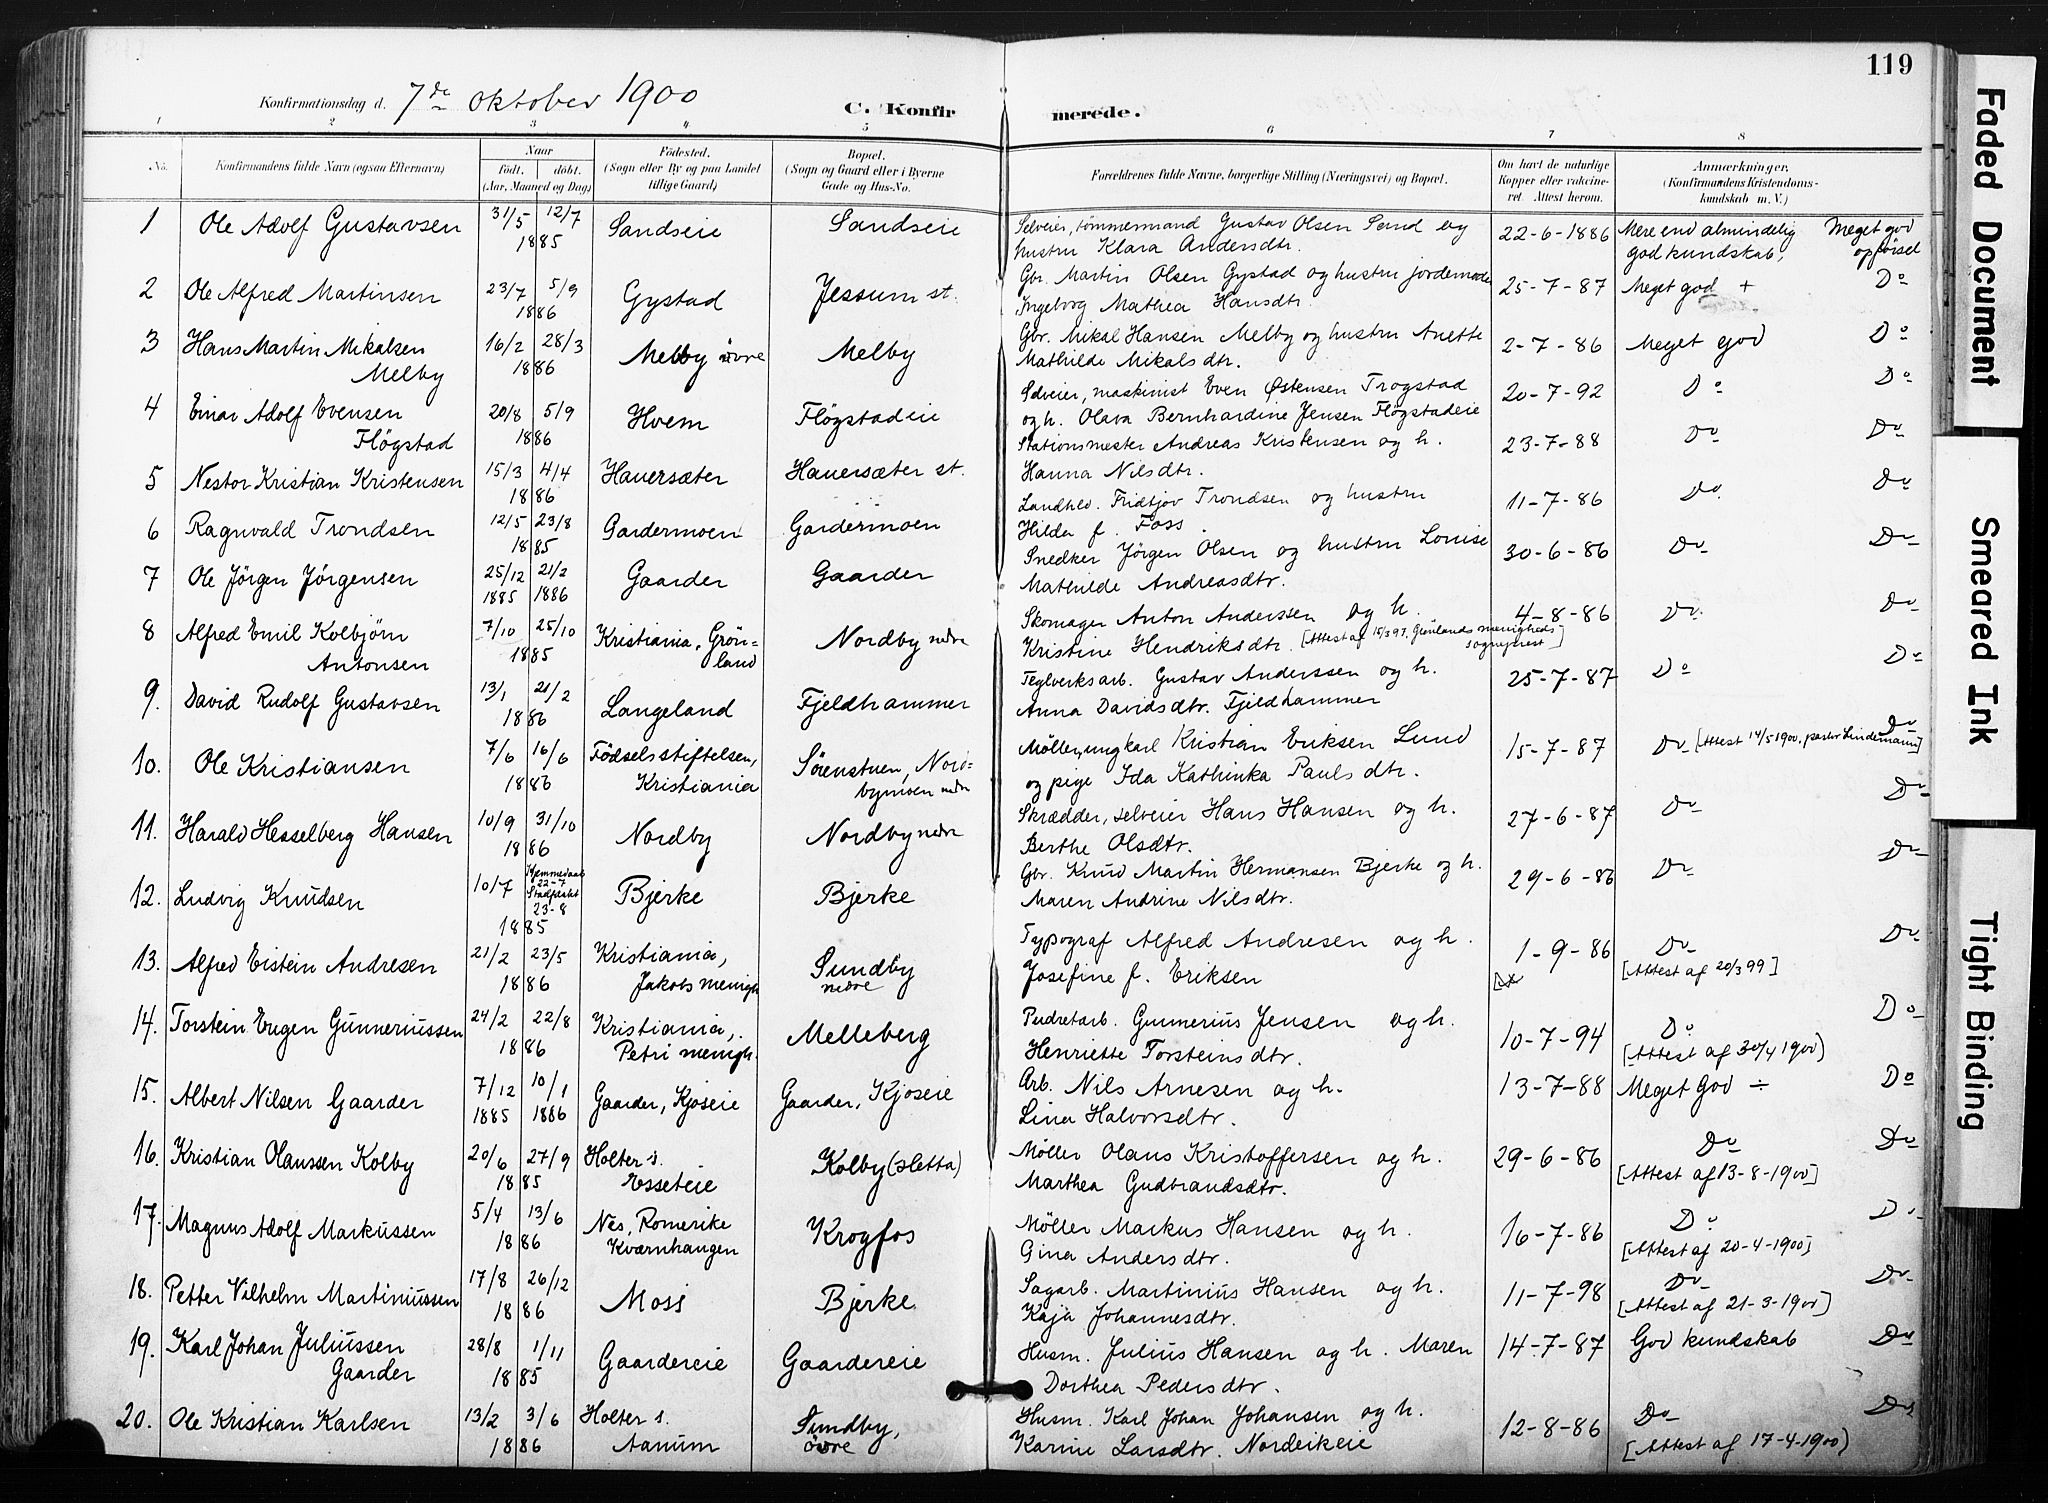 119
Konfirmationsdag d. 7de oktober 1900
C. Konfirmerede.
1 2 3 4 5 6 7 8
No. Konfirmandens fulde Navn (ogsaa Efternavn) Naar født. døbt. (Aar, Maaned og Dag) Fødested. (Sogn eller By og paa Landet tillige Gaard) Bopæl. (Sogn og Gaard eller i Byerne Gade og Hus-No. Forældrenes fulde Navne, borgerlige Stilling (Næringsvei) og Bopæl. Om havt de naturlige Kopper eller vakcineret. Attest herom. Anmærkninger. (Konfirmandens Kristendomskundskab m. V.)
1 Ole Adolf Gustavsen 31/5 12/7 1885 Sandseie Sandseie Selveier, tømmermand Gustav Olsen Sand og hustru Klara Andersdtr. 22-6-1886 Mere end almindelig god kundskab. Meget god opførsel
2 Ole Alfred Martinsen 23/7 5/9 1886 Gystad Jessum st. Gbr. Martin Olsen Gystad og hustru jordemoder Ingeborg Mathea Hansdtr. 25-7-87 Meget god + Do
3 Hans Martin Mikalsen Melby 16/2 28/3 1886 Melby övre Melby Gbr. Mikal Hansen Melby og hustru Anette Mathilde Mikalsdtr. 2-7-86 Meget god Do
4 Einar Adolf Evensen Flögstad 20/8 5/9 1886 Hvem Flögstadeie Selveier, maskinist Even Østensen Trogstad og h. Olava Bernhardine Jensen Flögstadeie 20-7-92 Do Do
5 Nestor Kristian Kristensen 15/3 4/4 1886 Hauersæter Hauersæter st. Stationsmester Andreas Kristensen og h. Hanna Nilsdtr. 23-7-88 Do Do
6 Ragnvald Trondsen 12/5 23/8 1885 Gardermoen Gardermoen Landhdl. Fridtjov Trondsen og hustru Hilda f. Foss. 11-7-86 Do Do
7 Ole Jörgen Jörgensen 25/12 1885 21/2 1886 Gaarder Gaarder Snedker Jörgen Olsen og hustru Louise Mathilde Andreasdtr. 30-6-86 Do Do
8 Alfred Emil Kolbjörn Antonsen 7/10 25/10 1885 Kristiania, Grönland Nordby nedre Skomager Anton Anderssen og h. Kristine Hendriksdtr. [Attest af 15/3 97. Grönlands menigheds sogneprest] 4-8-86 Do Do
9. David Rudolf Gustavsen 13/1 21/2 1886 Langeland Fjeldhammer Teglverksarb. Gustav Anderssen og h. Anna Davidsdtr. Fjeldhammer 25-7-87 Do Do
10. Ole Kristiansen 7/6 16/6 1886 Födselsstiftelsen, Kristiania Sörenstuen, Nordbymoen nedre Möller, ungkarl Kristian Eriksen Lund og pige Ida Kathinka Paulsdtr. 15-7-87 Do [Attest 14/5 1900, pastor Lindemann] Do
11. Harald Hesselberg Hansen 10/9 31/10 1886 Nordby Nordby nedre Skrædder, selveier Hans Hansen og h. Berthe Olsdtr. 27-6-87 Do Do
12. Ludvig Knudsen 10/7 Hjemmedaab 22-7 Stadfæstet 23-8 1885 Bjerke Bjerke Gbr. Knud Martin Hermansen Bjerke og h. Maren Andrine Nilsdtr. 29-6-86 Do Do
13. Alfred Eistein Andresen 21/2 23/5 1886 Kristiania, Jakobs menigh Sundby nedre Typograf Alfred Andresen og h. Josefine f. Eriksen 1-9-86 Do [Attest af 20/3 99] Do
14. Torstein Eugen Gunneriussen 24/2 22/8 1886 Kristiania, Petri menigh. Melleberg Pudretarb. Gunnerius Jensen og h. Henriette Torsteinsdtr. 10-7-94 Do [Attest af 30/4 1900) Do
15. Albert Nilsen Gaarder 7/12 1885 10/1 1886 Gaarder, Kjoseie Gaarder, Kjoseie Arb. Nils Arnesen og h. Lina Halvorsdtr. 13-7-88 Meget God ÷ Do
16. Kristian Olaussen Kolby 20/6 27/9 1885 Holter s. Esseteie Kolby (sletta) Møller Olaus Kristoffersen og h. Marthea Gudbrandsdtr. 29-6-86 Do [Attest af 13-8-1900] Do
17. Magnus Adolf Markussen 5/4 13/6 1886 Nes, Romerike Kværnhaugen Krogfos Møller Markus Hansen og h. Gina Andersdtr. 16-7-86 Do [Attest af 20-4-1900] Do
18. Petter Vilhelm Martiniussen 17/8 26/12 1886 Moss Bjerke Sagarb. Martinius Hansen og h. Kaja Johannesdtr. 11-7-98 Do [Attest af 21-3-1900] Do
19. Karl Johan Juliussen Gaarder 28/8 1/11 1885 Gaardereie Gaardereie Husm. Julius Hansen og h. Maren Dorthea Pedersdtr. 14-7-87 God kundskab Do
20. Ole Kristian Karlsen 13/2 3/6 1886 Holter s. Aanum Sundby, övre Husm. Karl Johan Johansen og h. Karine Larsdtr. Nordeikeie 12-8-86 Do [Attest af 17-4-1900) Do
Faded Document
Smeared Ink
Tight Binding